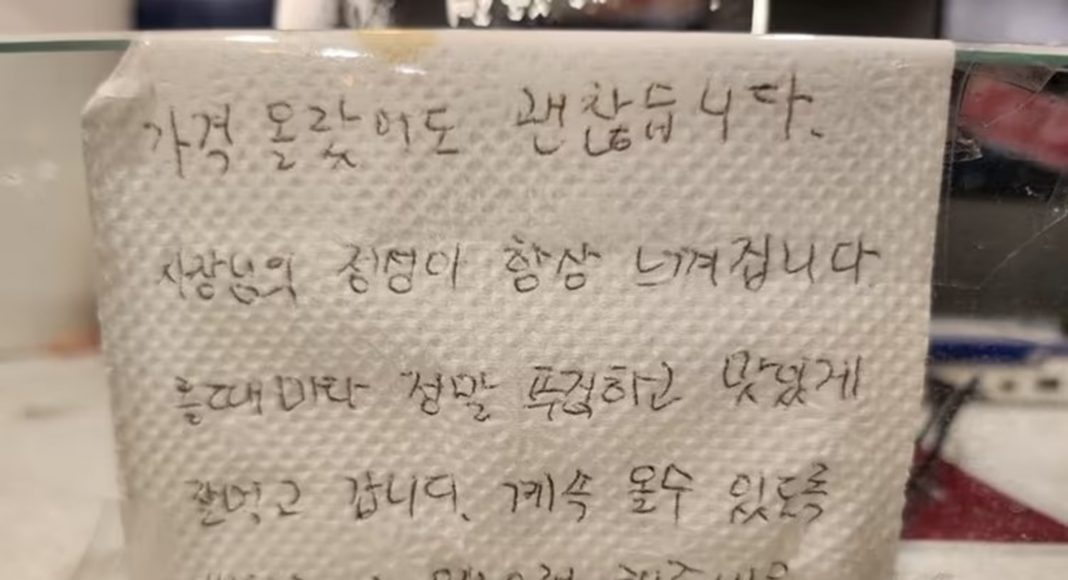 가격 올랐어도 괜찮습니다.
사장님의 정성이 항상 느껴집니다.
올때마다 정말 푸짐하고 맛있게
잘먹고 갑니다. 계속 올수 있도록